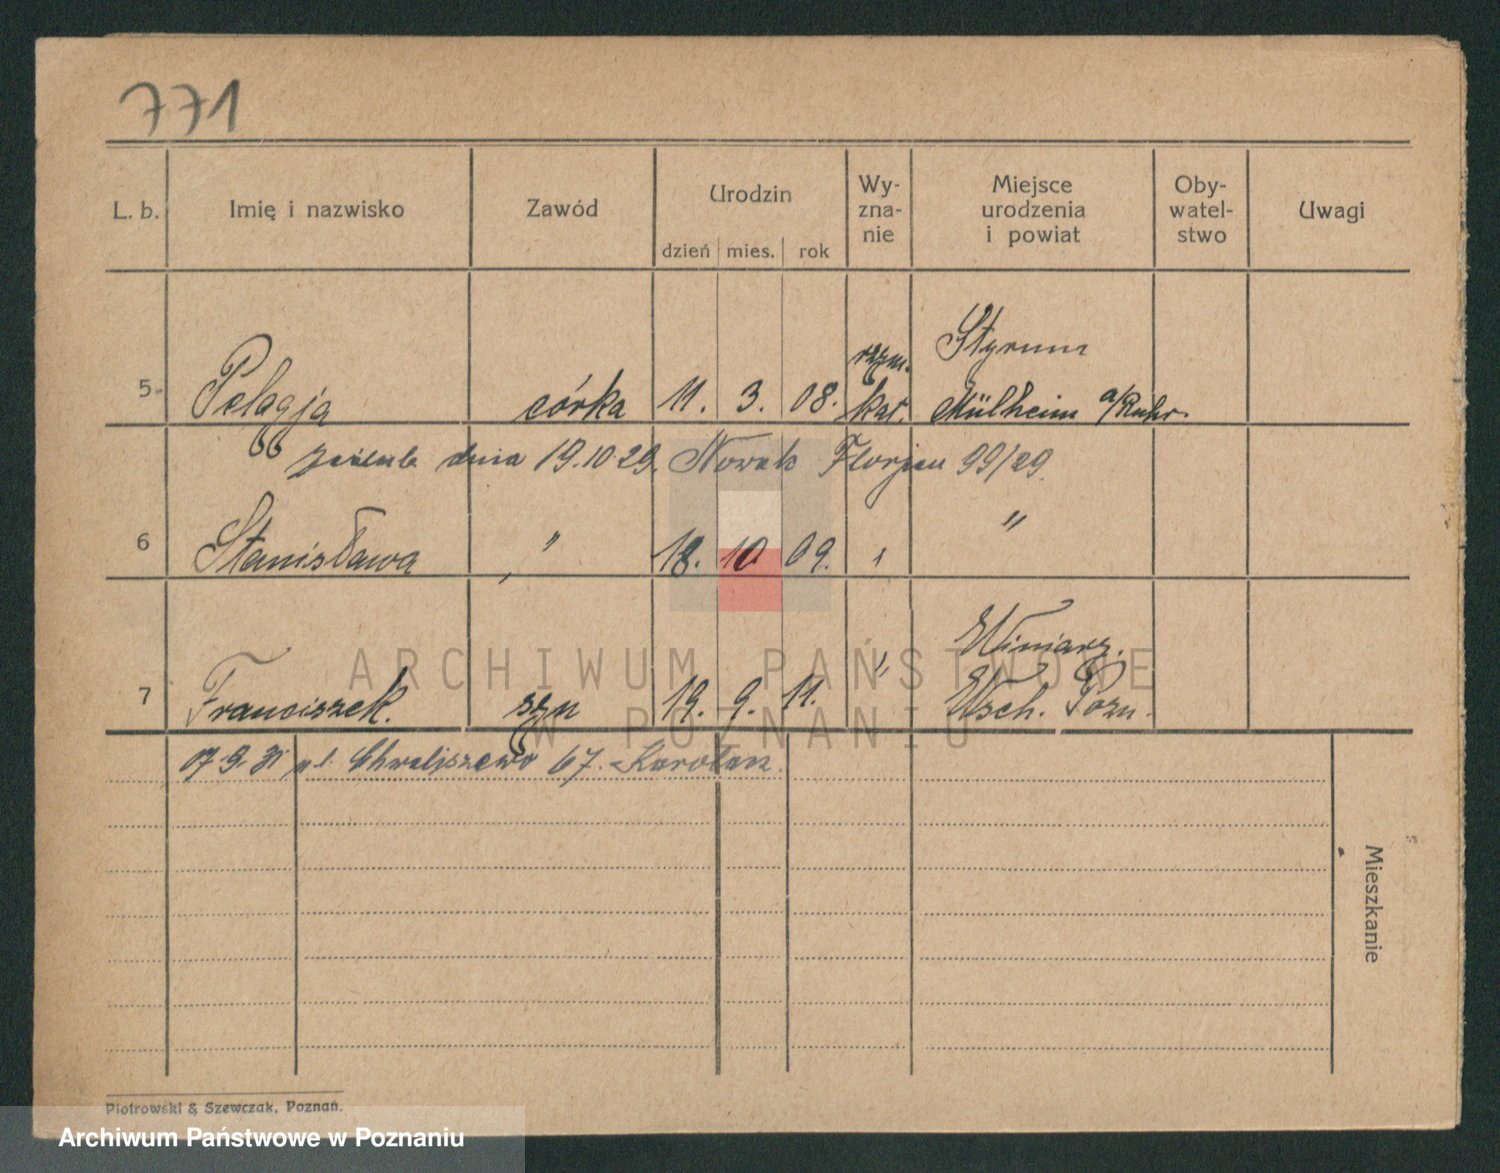 771
L. b. Imię i nazwisko Zawód Urodzin dzień mies. rok Wy-zna-nie Miejsce urodzenia i powiat Oby-watel-stwo Uwagi
5. Pelagja córka 11. 3. 08. rzym. kat. Styrum Mülheim a/Ruhr.
dnia 19.10.29. Nowak Florjan 99/29.
6 Stanisława " 18. 10 09. " "
7 Franciszek. syn 19. 9. 11. " Winiarz. Wsch. Pozn.
17 9 31 ul. Chwaliszewo 67.
Mieszkanie
Piotrowski & Szewczak, Poznań.
ARCHIWUM PAŃSTWOWE
W POZNANIU
Archiwum Państwowe w Poznaniu